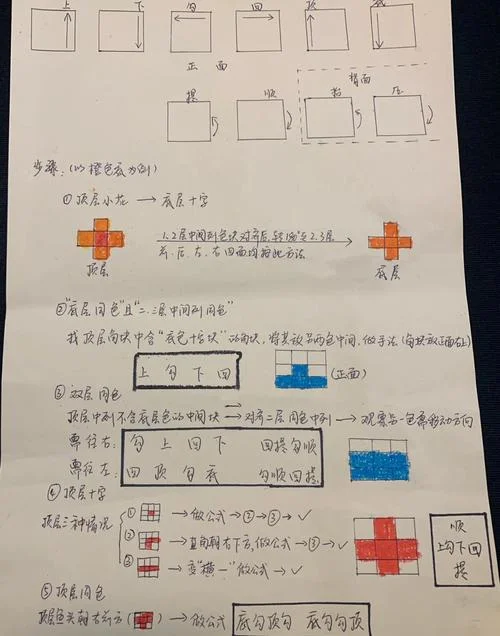 上 下 勾 回 顶 底
正面
背面
提 顺 抬 压
步骤:(以橙色底为例)
①顶层小花 → 底层十字
1.2层中间列色块对齐后,转180°至2.3层
前、后、左、右四面均按此方法
顶层 底层
②"底层同色"且"二、三层中间列同色"
找顶层角块中含"底色十字块"的角块,将其放另两色中间,做手法(角块放正面右上)
上勾下回
(正面)
③双层同色
顶层中列不含底层色的中间块 → 对齐二层同色中列 → 观察另一色需移动方向
需往右: 勾上回下 回提勾顺
需往左: 回顶勾底 勾顺回提
④顶层十字
顶层三种情况
① → 做公式 → ② → ③ → ✓
② → 直角朝右下方,做公式 → ③ → ✓
③ → 变"横一"做公式 → ✓
顺
上勾下回
提
⑤顶层同色
顶层鱼头朝右前方( ) → 做公式 底勾顶勾 底勾勾顶